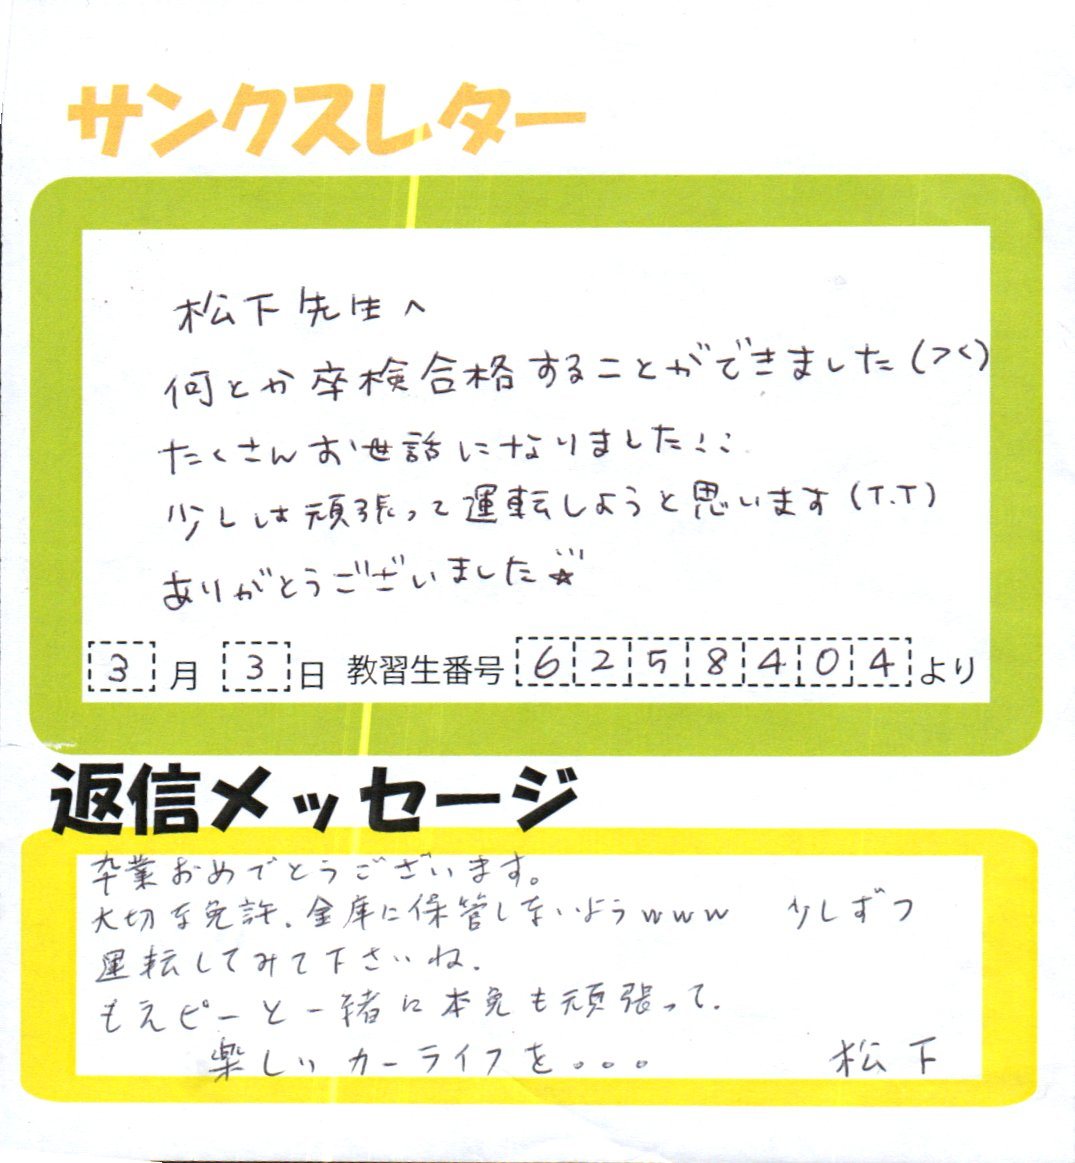 サンクスレター
松下先生へ
何とか卒検合格することができました(つく)
たくさんお世話になりました!!
少しは頑張って運転しようと思います(T.T)
ありがとうございました☆
3月3日 教習生番号 6258404より
返信メッセージ
卒業おめでとうございます。
大切な免許、金庫に保管しないようwww 少しずつ
運転してみて下さいね。
もえピーと一緒に本免も頑張って。
楽しいカーライフを。。。 松下